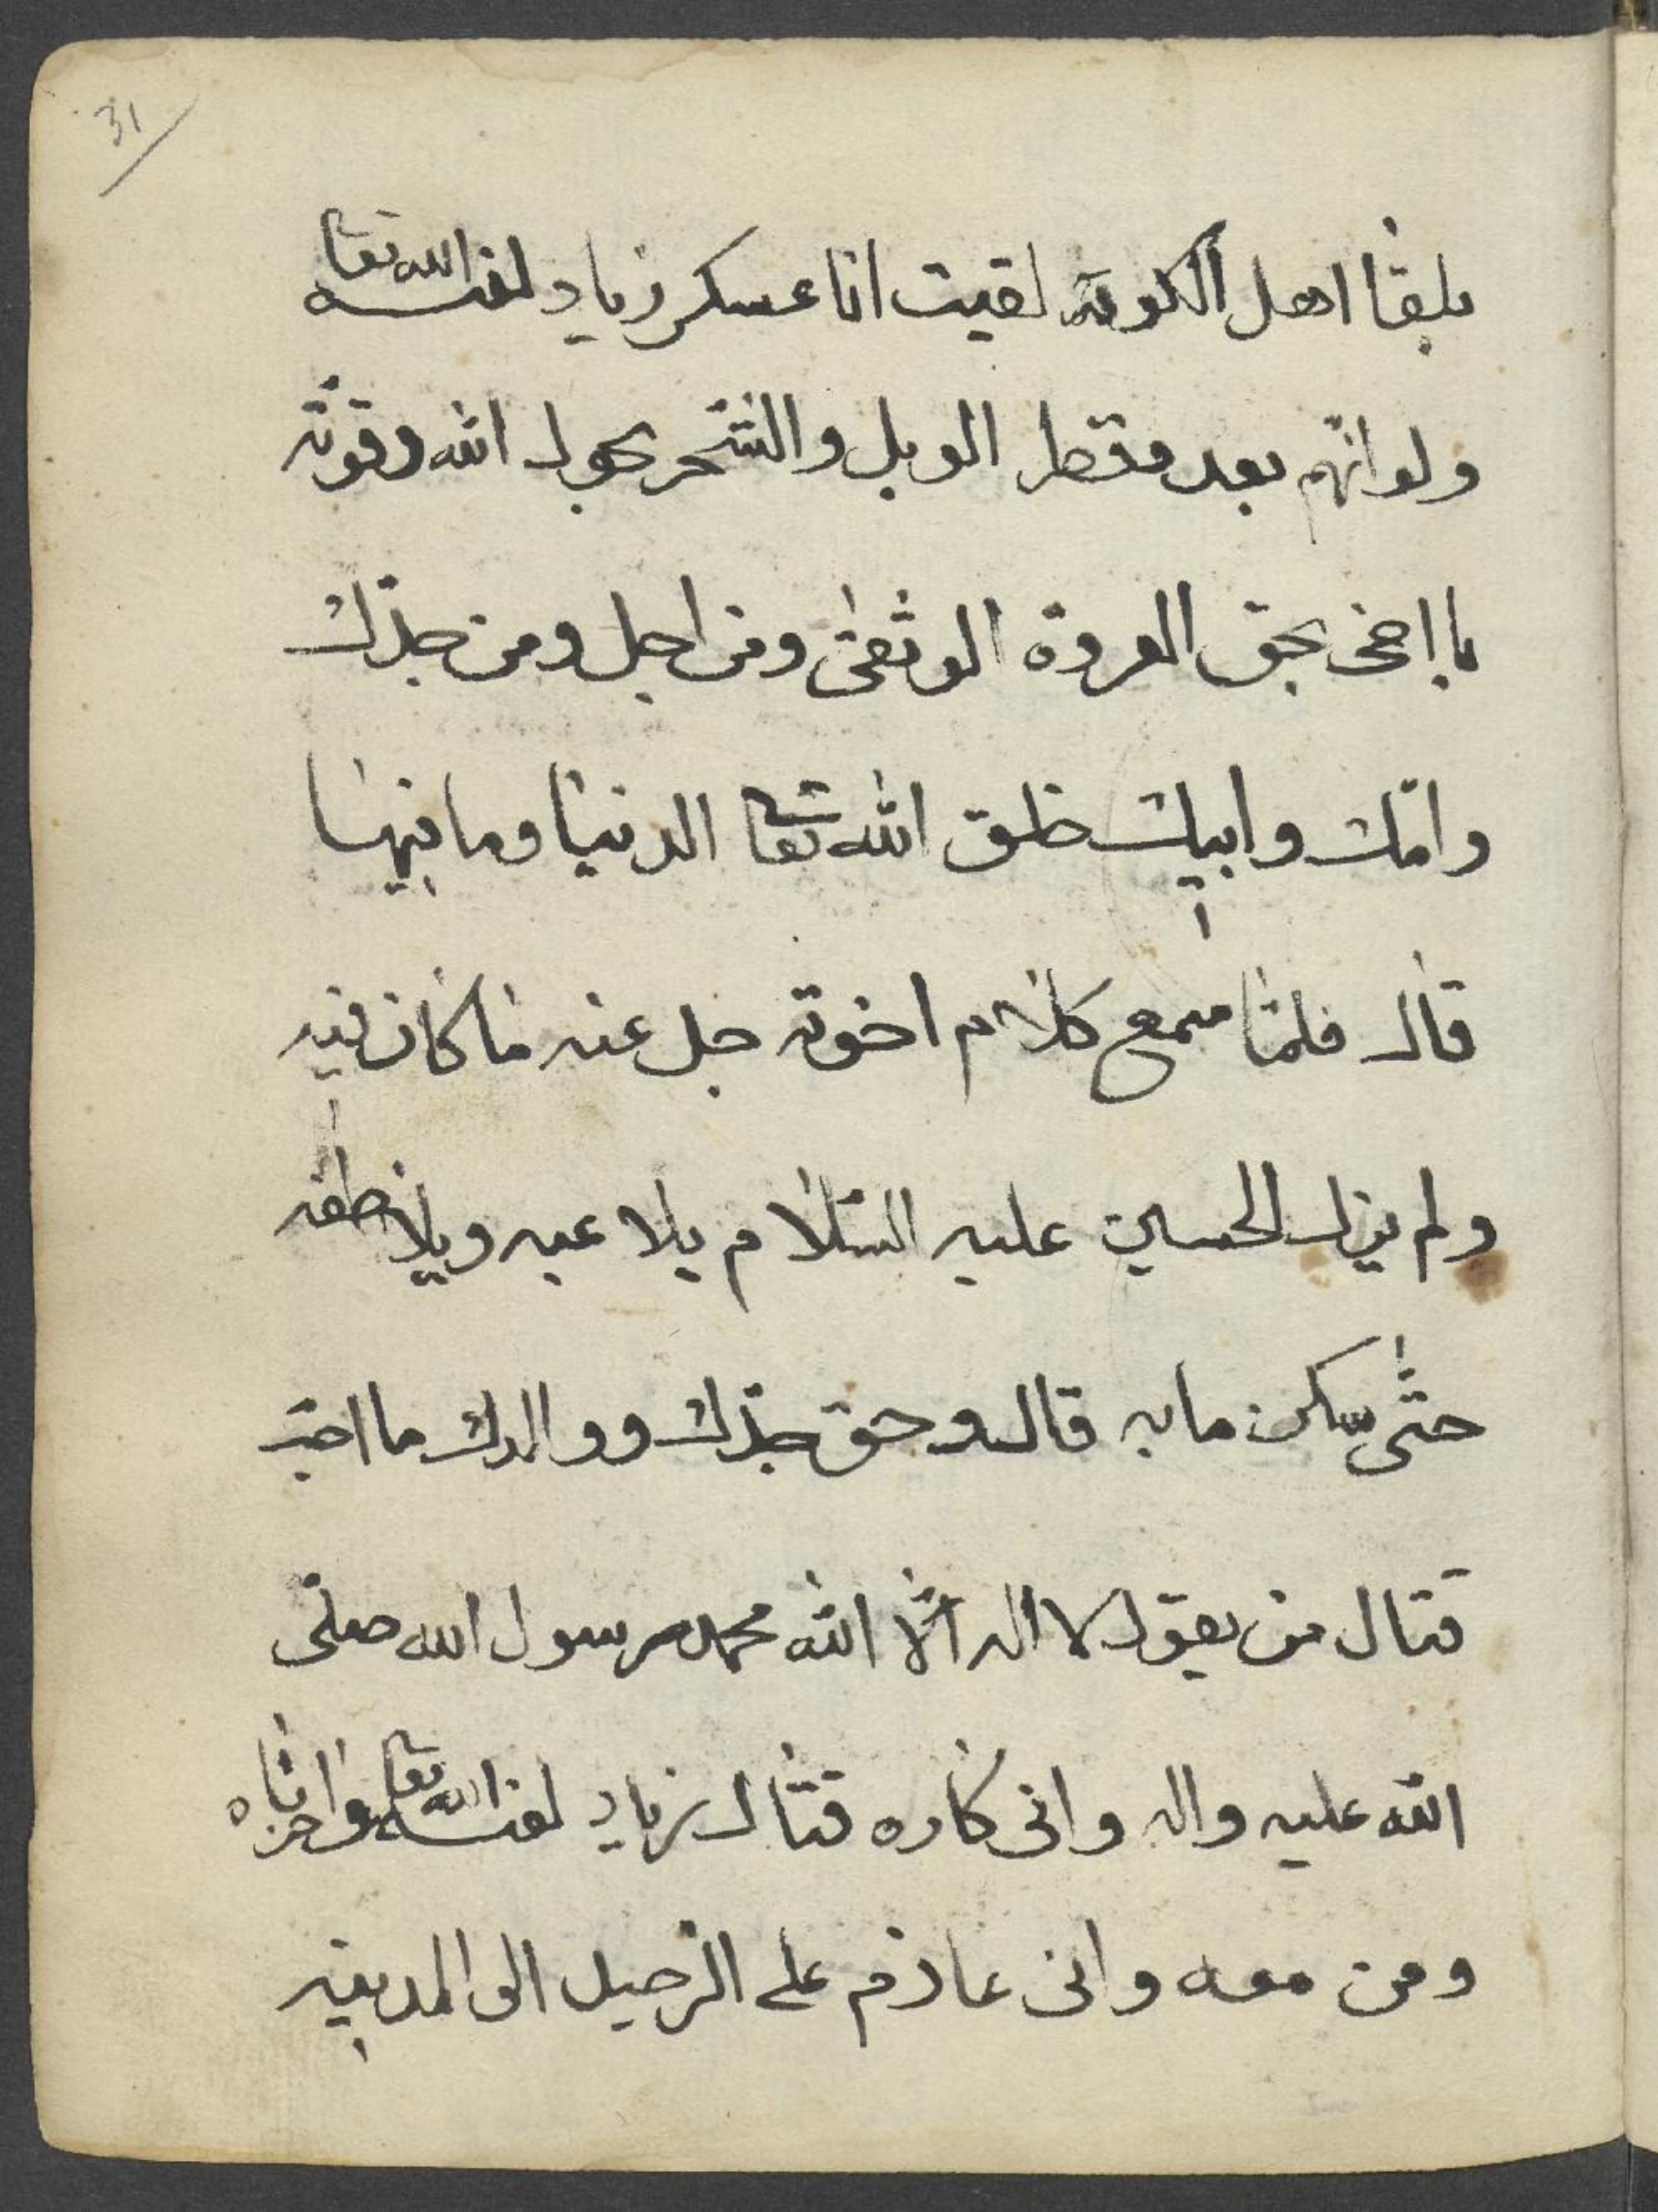 31
بلقا اهل الكوفة لقيت انا عسكر زياد لعنه الله تعا
ولو انّهم بعدد قطر الوبل والشّجر بحول الله وقوّته
يا اخى بحق العروة الوثقى ومن اجل ومن جدّك
وامّك وابيك خلق الله تعا الدنيا وما فيها
قال فلمّا سمع كلام اخوته جل عنه ما كان فيه
ولم يزل الحسين عليه السّلام يلاعبه ويلاطفه
حتّى سكن ما به قال وحق جدّك ووالدك ما احبّ
قتال من يقول لا اله الّا الله محمد رسول الله صلّى
الله عليه واله وانى كاره قتال زياد لعنه الله تعا واخزاه
ومن معه وانى عازم على الرّحيل الى المدينه